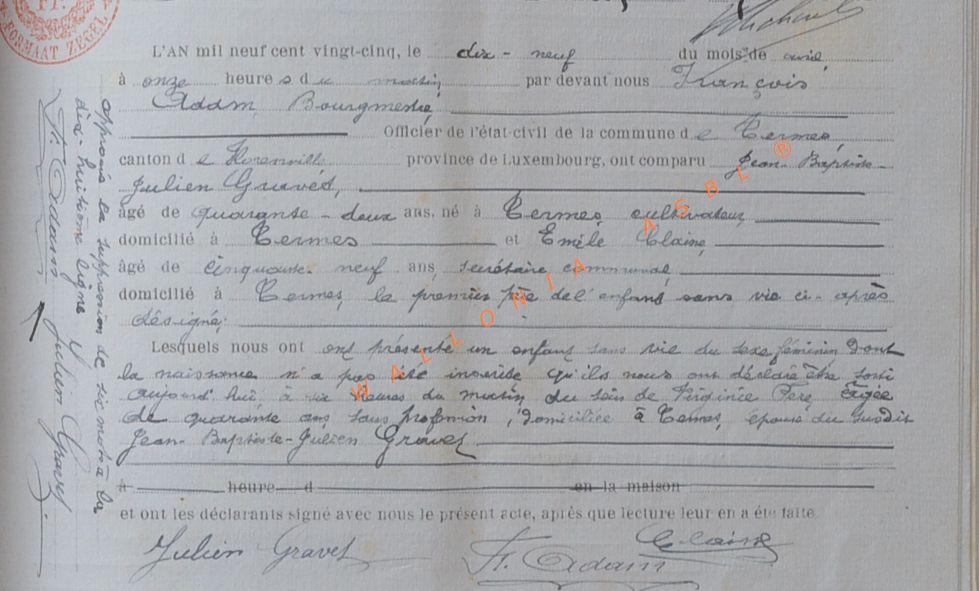 FORMAAT ZEGEL
L'AN mil neuf cent vingt-cinq, le dix-neuf du mois de avril
à onze heures du matin par devant nous François
Adam Bourgmestre
Officier de l'état-civil de la commune de Termes
canton de Florenville province de Luxembourg, ont comparu Jean-Baptiste-
Julien Gravet,
âgé de quarante-deux ans, né à Termes, cultivateur,
domicilié à Termes et Emile Claine,
âgé de cinquante-neuf ans, secrétaire communal,
domicilié à Termes, le premier père de l'enfant sans vie ci-après
désigné;
Lesquels nous ont ont présenté un enfant sans vie du sexe féminin dont
la naissance n'a pas été inscrite qu'ils nous ont déclaré être sorti
aujourd'hui, à six heures du matin du sein de Virginie âgée
de quarante ans, sans profession, domiciliée à Termes, épouse du susdit
Jean-Baptiste-Julien Gravet
à heure d en la maison
et ont les déclarants signé avec nous le présent acte, après que lecture leur en a été faite.
Julien Gravet
Fr. Adam
Claine
Approuvé la suppression de six mots à la
dix-huitième ligne
Fr. Adam Julien Gravet
WALLONIA ASBL ®